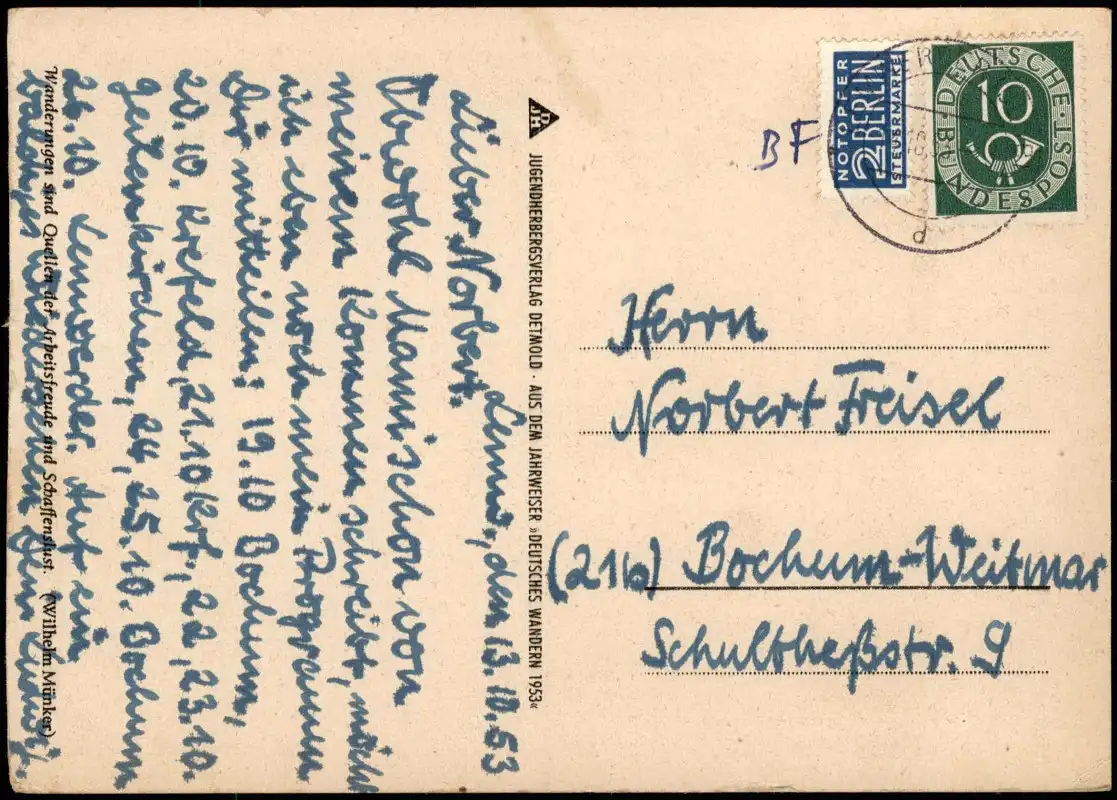 Lemm, den 13.10.53
Lieber Norbert.
Obwohl Manni schon von
meinem Kommen schreibt, möcht
ich eben noch mein Programm
Dir mitteilen: 19.10 Bochum,
20.10. Krefeld, 21.10 Krf., 22., 23.10.
Geilenkirchen, 24., 25.10. Bochum
26.10. Lennwerder. Auf ein
baldiges Wiedersehen Dein
Wanderungen sind Quellen der Arbeitsfreude und Schaffenslust. (Wilhelm Münker)
DJH
JUGENDHERBERGSVERLAG DETMOLD · AUS DEM JAHRWEISER »DEUTSCHES WANDERN 1953«
BF
NOTOPFER
2 BERLIN
STEUERMARKE
DEUTSCHE
10
BUNDESPOST
d
Herrn
Norbert Freisel
(21b) Bochum-Weitmar
Schultheßstr. 9